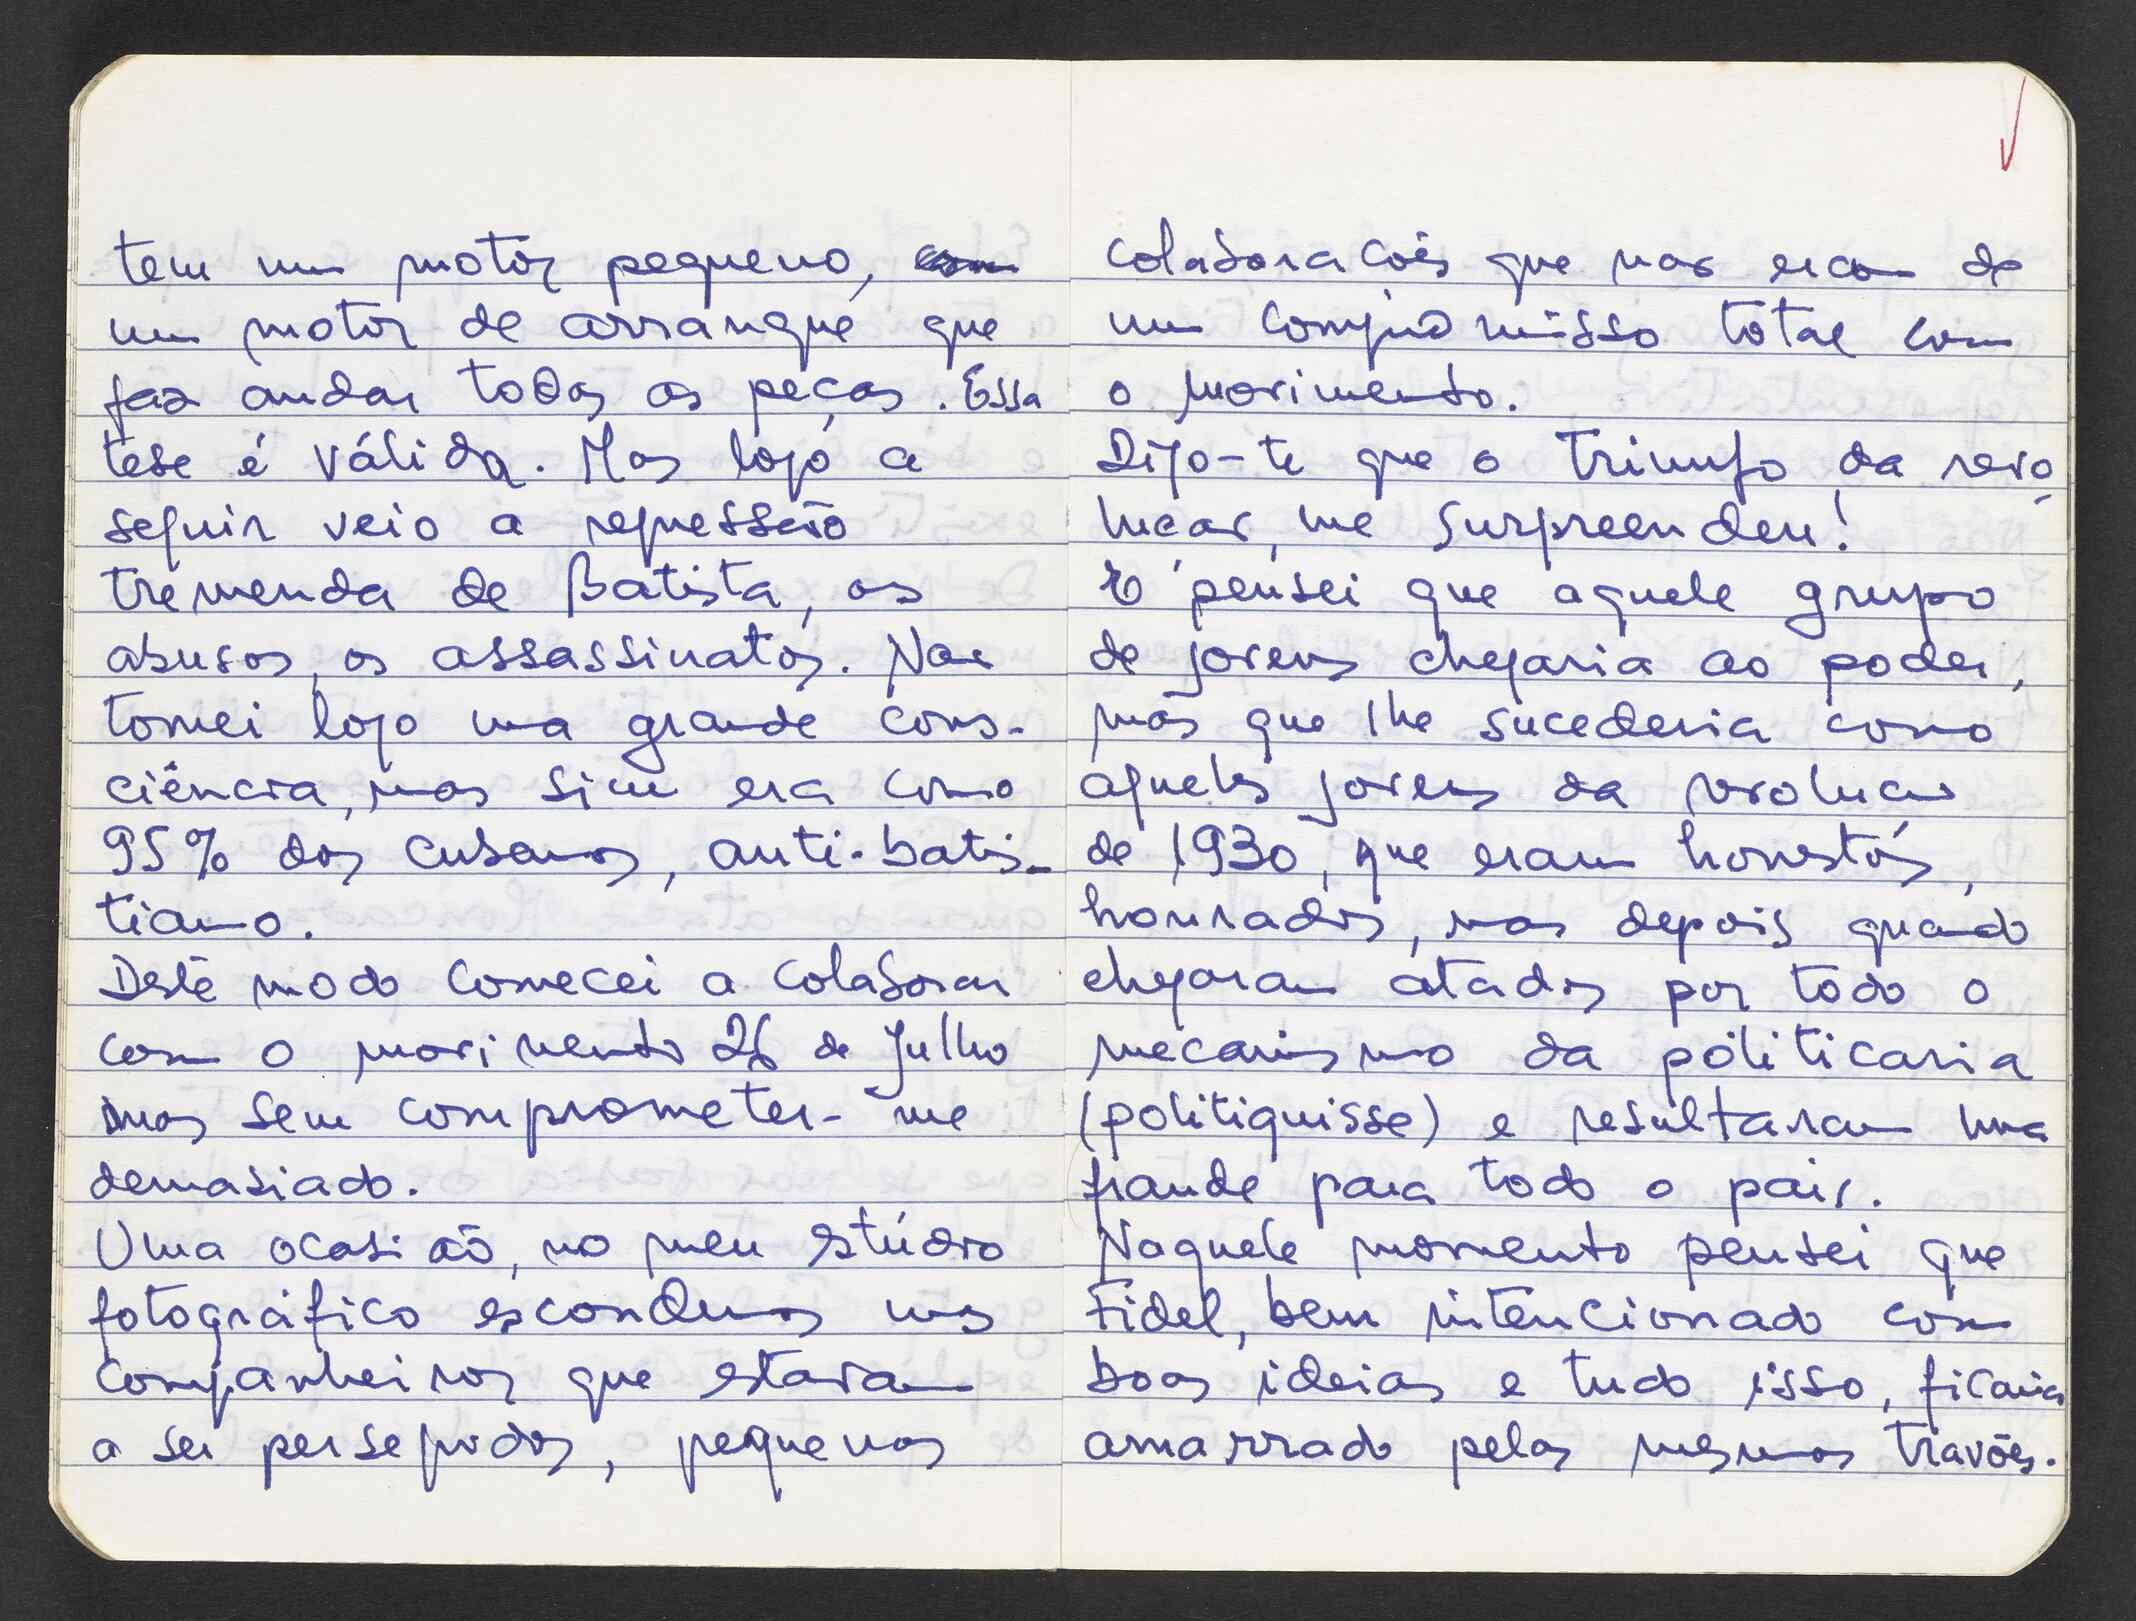 tem um motor pequeno,
um motor de arranque que
faz andar todas as peças. Essa
tese é válida. Mas logo a
seguir veio a repressão
tremenda de Batista, os
abusos, os assassinatos. Nao
tomei logo uma grande cons-
ciência, mas sim era como
95% dos cubanos, anti-batis-
tiano.
Deste modo comecei a colaborar
com o movimento 26 de Julho
mas sem comprometer-me
demasiado.
Uma ocasião, no meu estúdio
fotográfico escondemos uns
companheiros que estavam
a ser perseguidos, pequenas
colaborações que nao eram de
um compromisso total com
o movimento.
Digo-te que o triunfo da revo
lucao, me surpreendeu!
E pensei que aquele grupo
de jovens chegaria ao poder,
mas que lhe sucederia como
aqueles jovens da revolucao
de 1930, que eram honestos,
honrados, mas depois quando
chegaram atados por todo o
mecanismo da politicaria
(politiquisse) e resultaram uma
fraude para todo o pais.
Naquele momento pensei que
Fidel, bem intencionado com
boas ideias e tudo isso, ficaria
amarrado pelos mesmos travões.